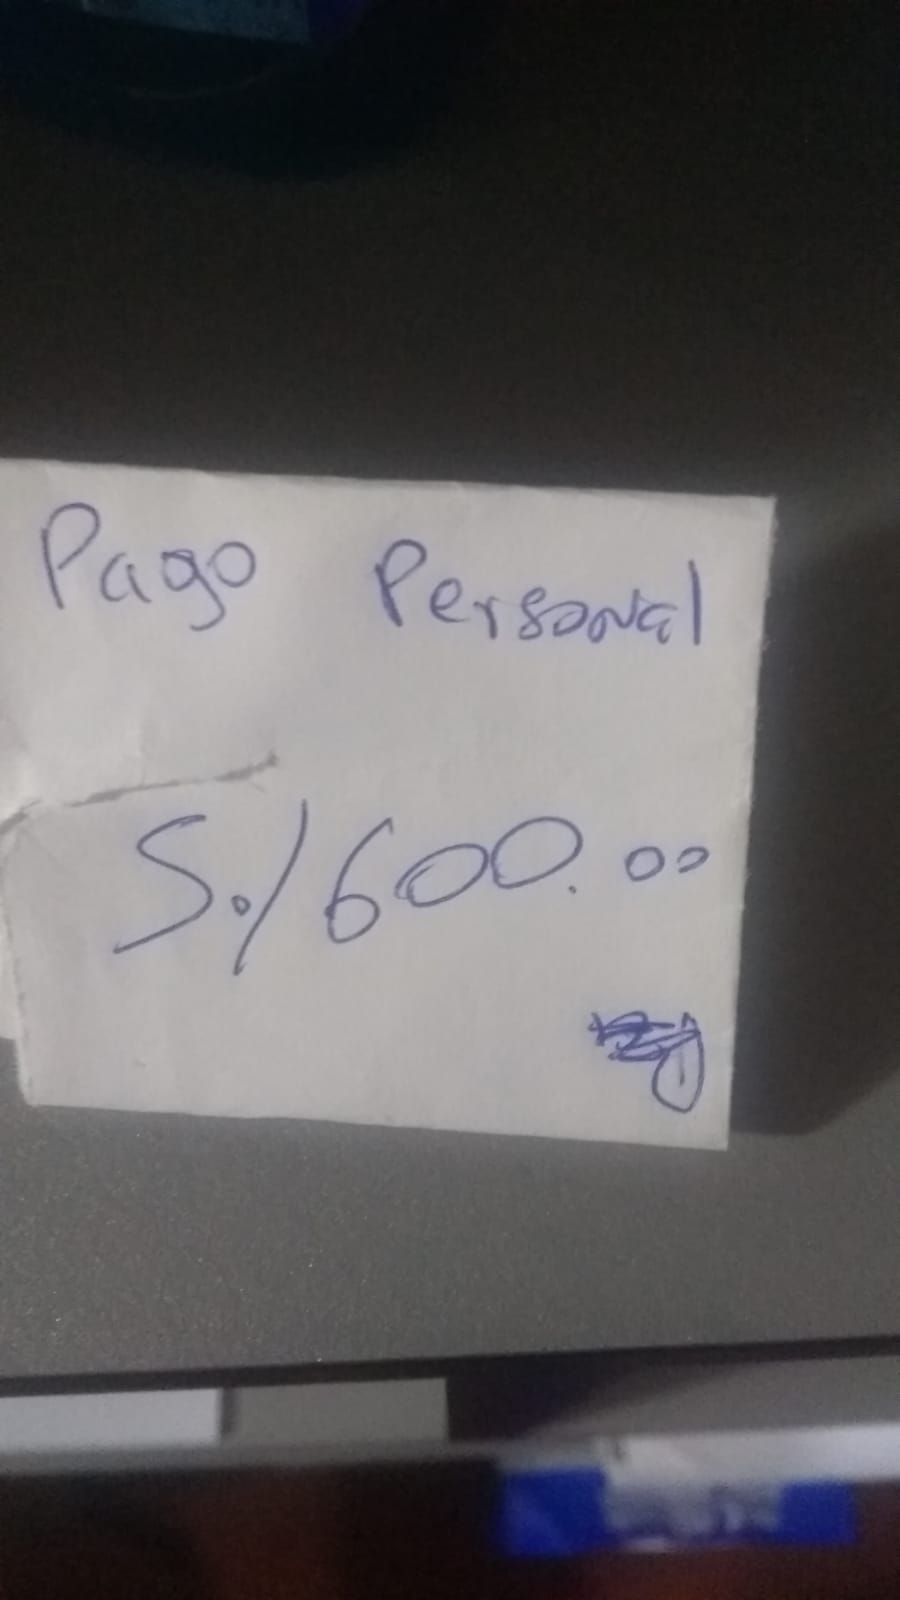 Pago Personal
S./600.00